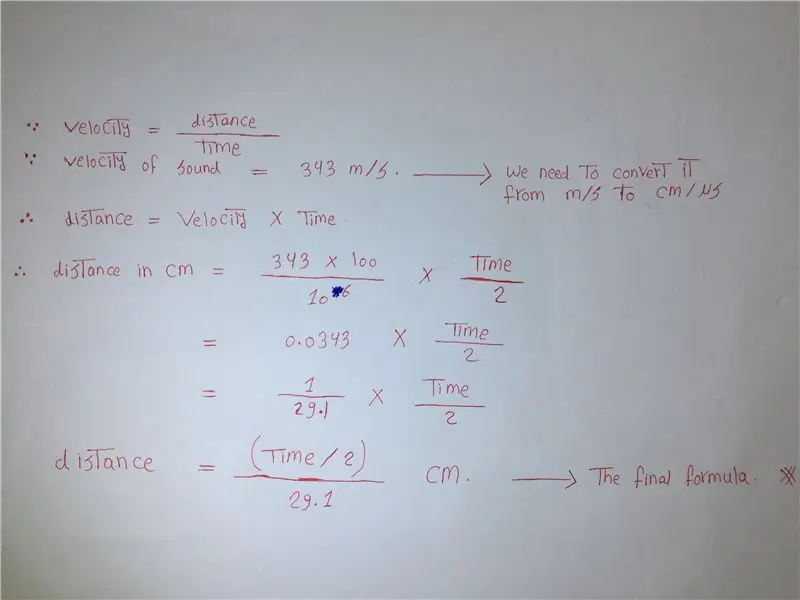 ∵ velocity = distance / Time
∵ velocity of sound = 343 m/s. → we need To convert it
from m/s to cm/μs
∴ distance = Velocity X Time
∴ distance in cm = 343 x 100 / 10^6 X Time / 2
= 0.0343 X Time / 2
= 1 / 29.1 X Time / 2
distance = (Time / 2) / 29.1 CM. → The final formula. ※